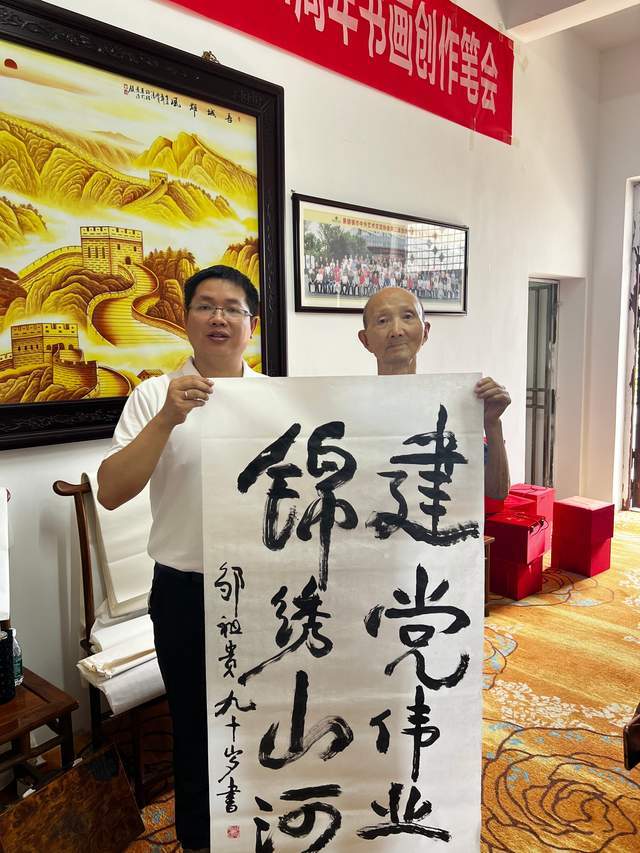 周年书画创作笔会
建党伟业
锦绣山河
邹祖贵九十岁书